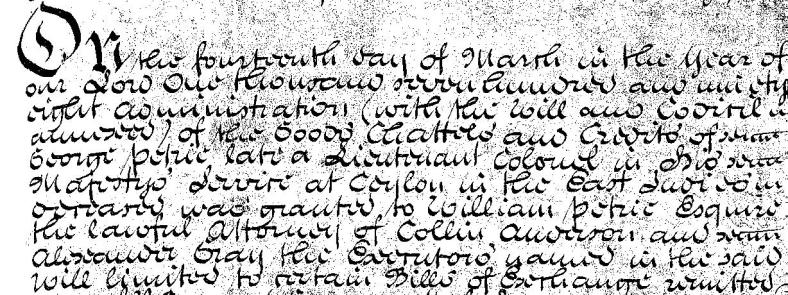 On the fourteenth day of March in the Year of
our Lord One thousand seven hundred and ninety
eight Administration (with the Will and Codicil
annexed) of the Goods Chattels and Credits of
George Petrie late a Lieutenant Colonel in His
Majestys Service at Ceylon in the East Indies
deceased was granted to William Petrie Esquire
the lawful Attorney of Collin Anderson and
Alexander Gray the Executors named in the said
Will limited to certain Bills of Exchange remitted